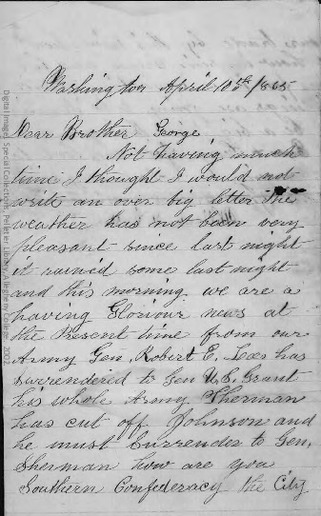 Washington April 10th 1865
Dear Brother George
Not having much
time I thought I would not
write an over big letter The
weather has not been very
pleasant since last night
it rained some last night
and this morning we are a
having Gloriour news at
the Present time from our
Army Gen. Robert E. Lees has
surrendered to Gen U.S. Grant
his whole Army Sherman
has cut off Johnson and
he must Surrender to Gen,
Sherman how are you
Southern Confederacy the City
Digital Image, Special Collections, Pelletier Library, Allegheny College, 2002